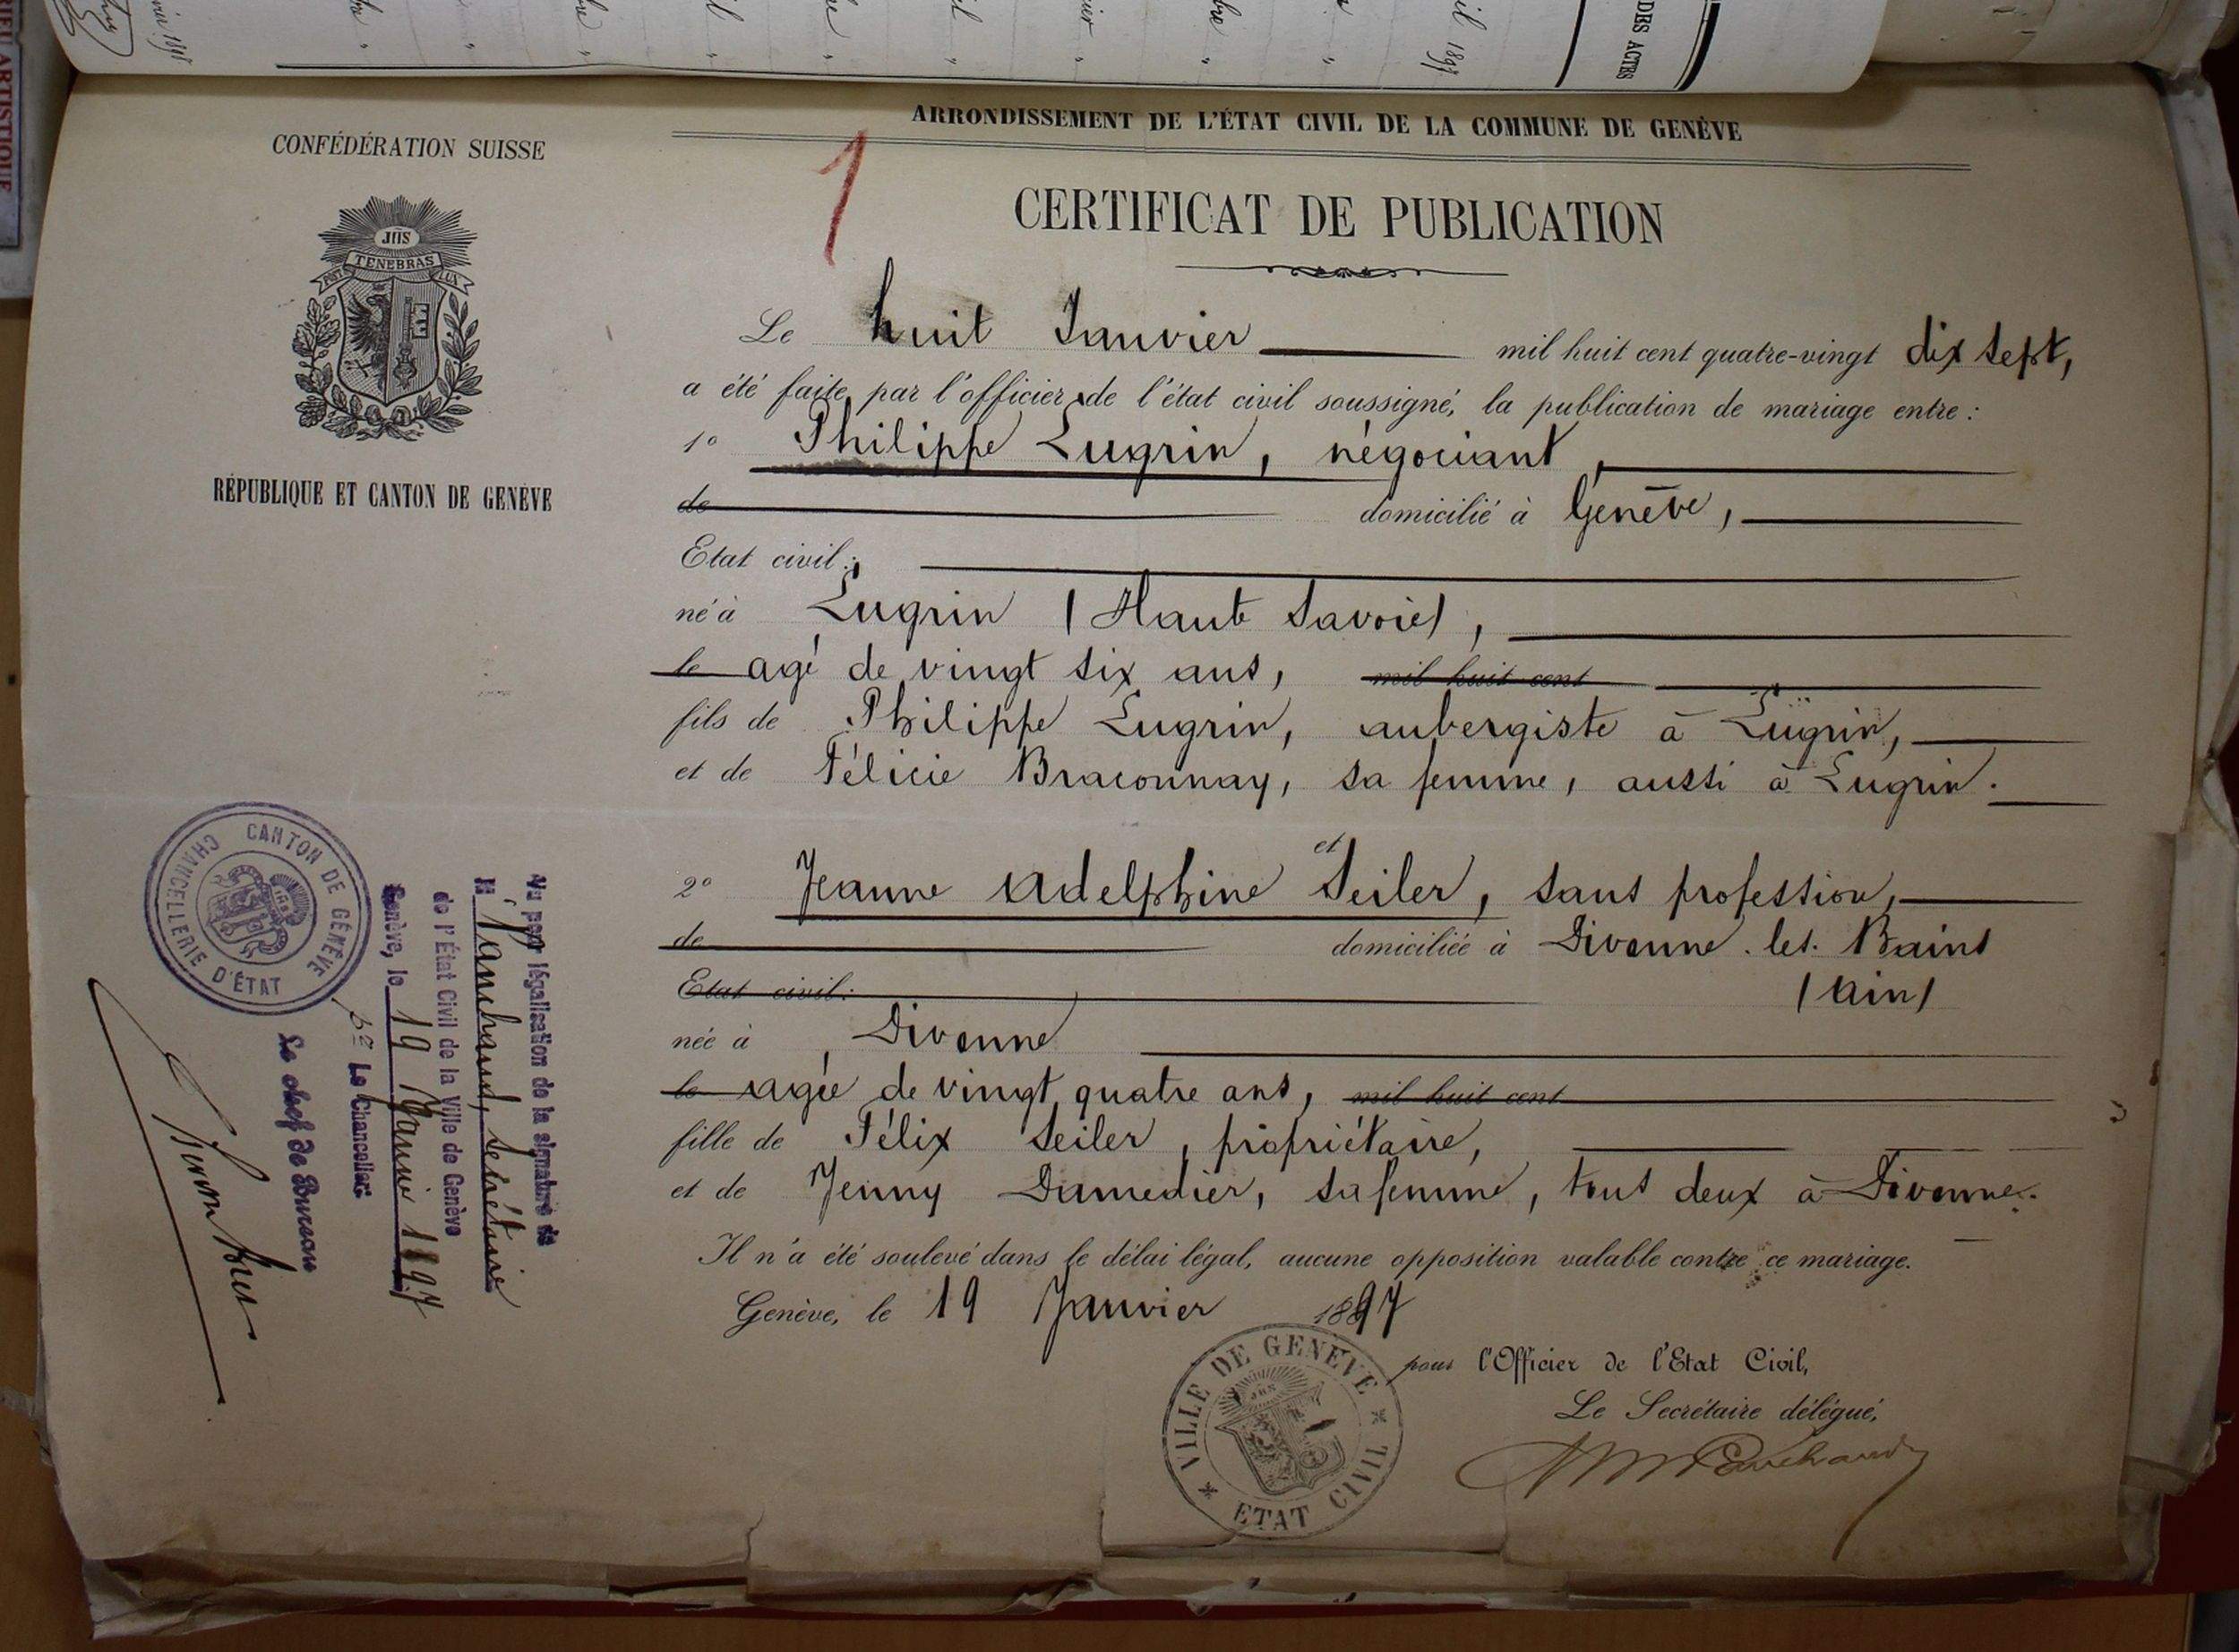 DES ACTES
il 1897
CONFÉDÉRATION SUISSE
POST TENEBRAS LUX
RÉPUBLIQUE ET CANTON DE GENÈVE
ARRONDISSEMENT DE L'ÉTAT CIVIL DE LA COMMUNE DE GENÈVE
1
CERTIFICAT DE PUBLICATION
Le huit Janvier mil huit cent quatre-vingt dix sept,
a été faite, par l'officier de l'état civil soussigné, la publication de mariage entre :
1o Philippe Lugrin, négociant,
de domicilié à Genève,
Etat civil :
né à Lugrin (Haute Savoie),
le agé de vingt six ans, mil huit cent
fils de Philippe Lugrin, aubergiste à Lugrin,
et de Félicie Braconnay, sa femme, aussi à Lugrin.
et
2o Jeanne Adelphine Seiler, sans profession,
de domiciliée à Divonne-les-Bains
Etat civil : (Ain)
née à Divonne
le agée de vingt quatre ans, mil huit cent
fille de Félix Seiler, propriétaire,
et de Jenny Damedier, sa femme, tous deux à Divonne.
Il n'a été soulevé dans le délai légal, aucune opposition valable contre ce mariage.
Genève, le 19 Janvier 1897
pour l'Officier de l'Etat Civil,
Le Secrétaire délégué,
VILLE DE GENÈVE
ETAT CIVIL
Vu pour légalisation de la signature de
M Panchaud, Secrétaire
de l'État Civil de la Ville de Genève
Genève, le 19 Janvier 1897
pr Le Chancelier:
Le chef de Bureau
CANTON DE GENÈVE
CHANCELLERIE D'ÉTAT